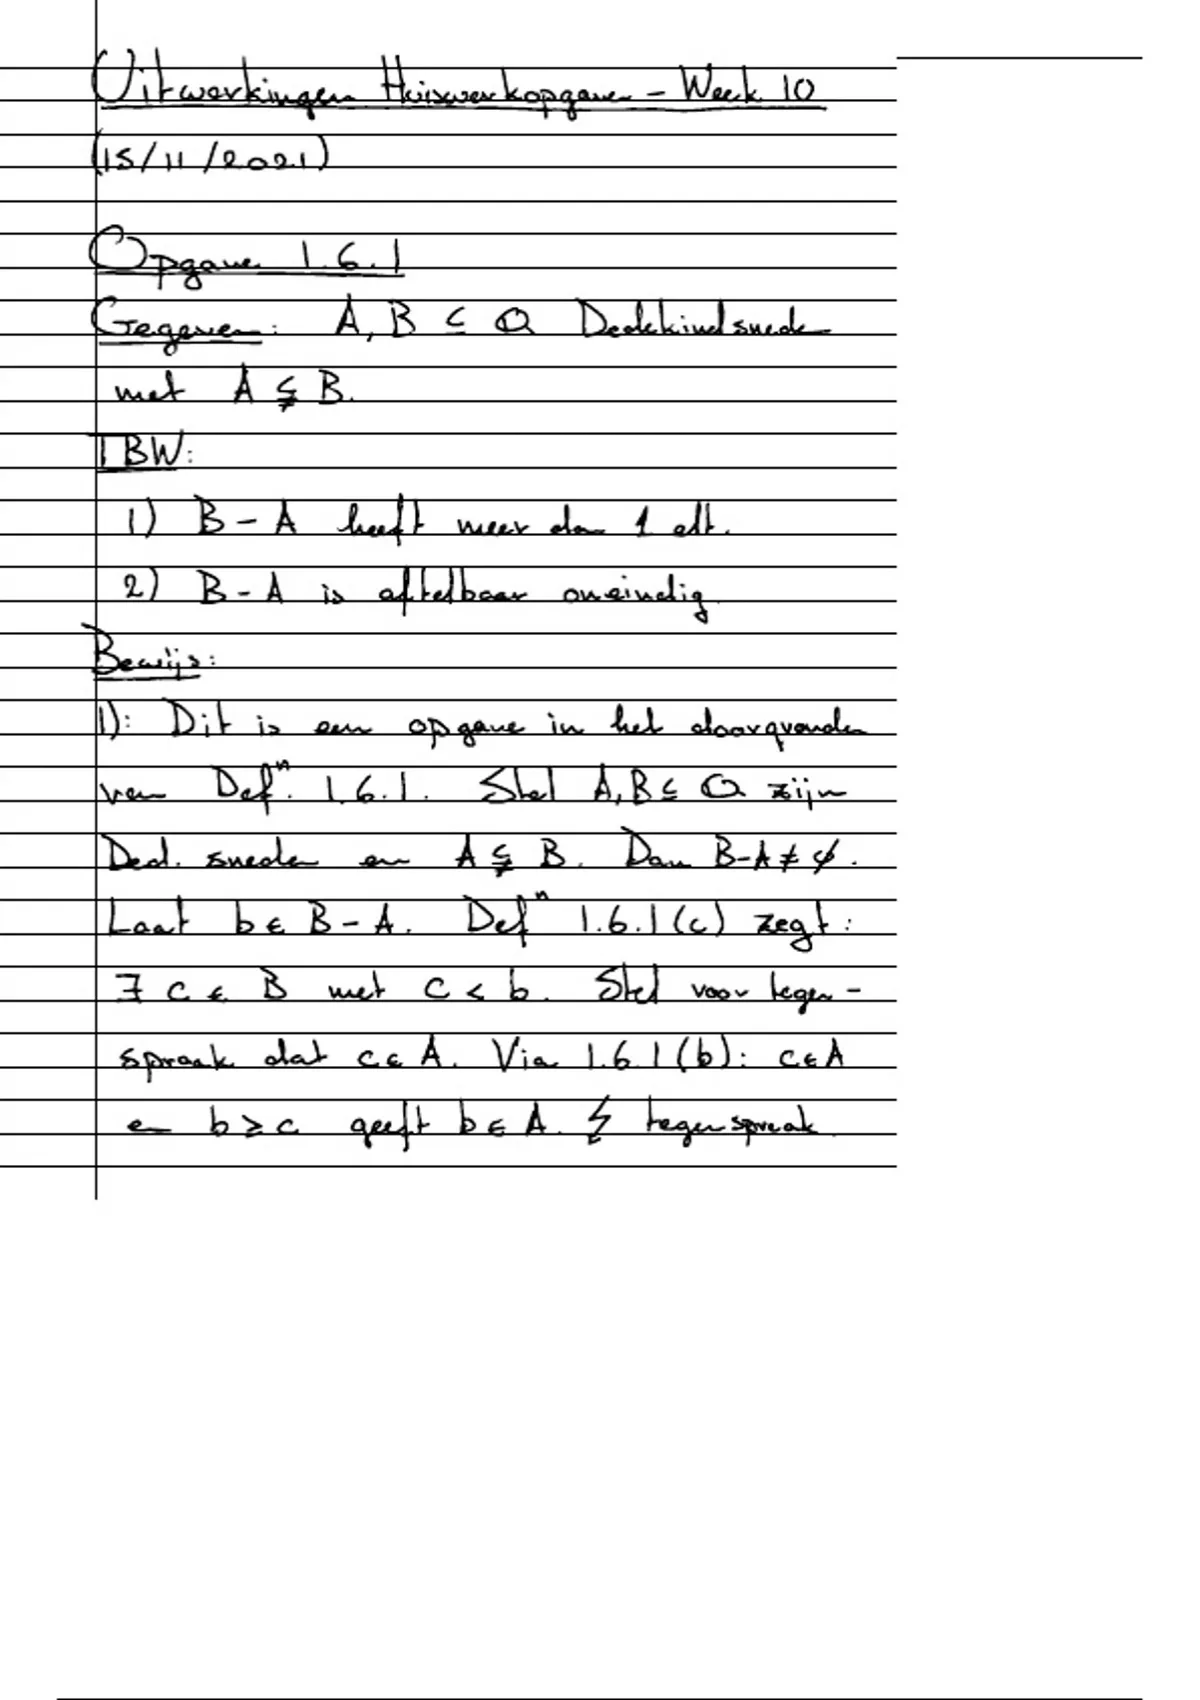 Uitwerkingen Huiswerkopgaven - Week 10
(15/11/2021)
Opgave 1.6.1
Gegeven: A, B ⊆ Q Dedekindsneden
met A ⊊ B.
TBW:
1) B - A heeft meer dan 1 elt.
2) B - A is aftelbaar oneindig.
Bewijs:
1): Dit is een opgave in het doorgronden
van Defⁿ. 1.6.1. Stel A, B ⊆ Q zijn
Ded. sneden en A ⊊ B. Dan B-A ≠ ∅.
Laat b ∈ B - A. Defⁿ 1.6.1(c) zegt:
∃ c ∈ B met c < b. Stel voor tegen-
spraak dat c ∈ A. Via 1.6.1(b): c ∈ A
en b ≥ c geeft b ∈ A. ↯ tegenspraak.